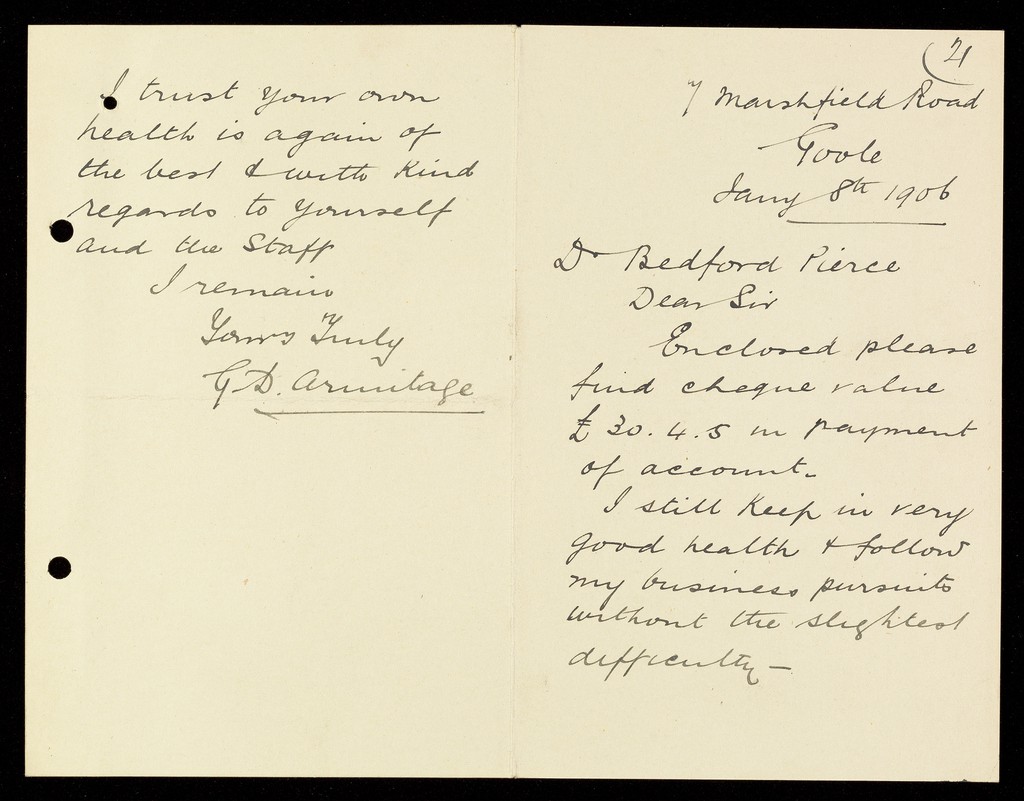 21
7 Marshfield Road
Goole
Jany 8th 1906
Dr Bedford Pierce
Dear Sir
Enclosed please
find cheque value
£30.4.5 in payment
of account.
I still keep in very
good health & follow
my business pursuits
without the slightest
difficulty –
I trust your own
health is again of
the best & with kind
regards to yourself
and the Staff
I remain
Yours Truly
G D. Armitage